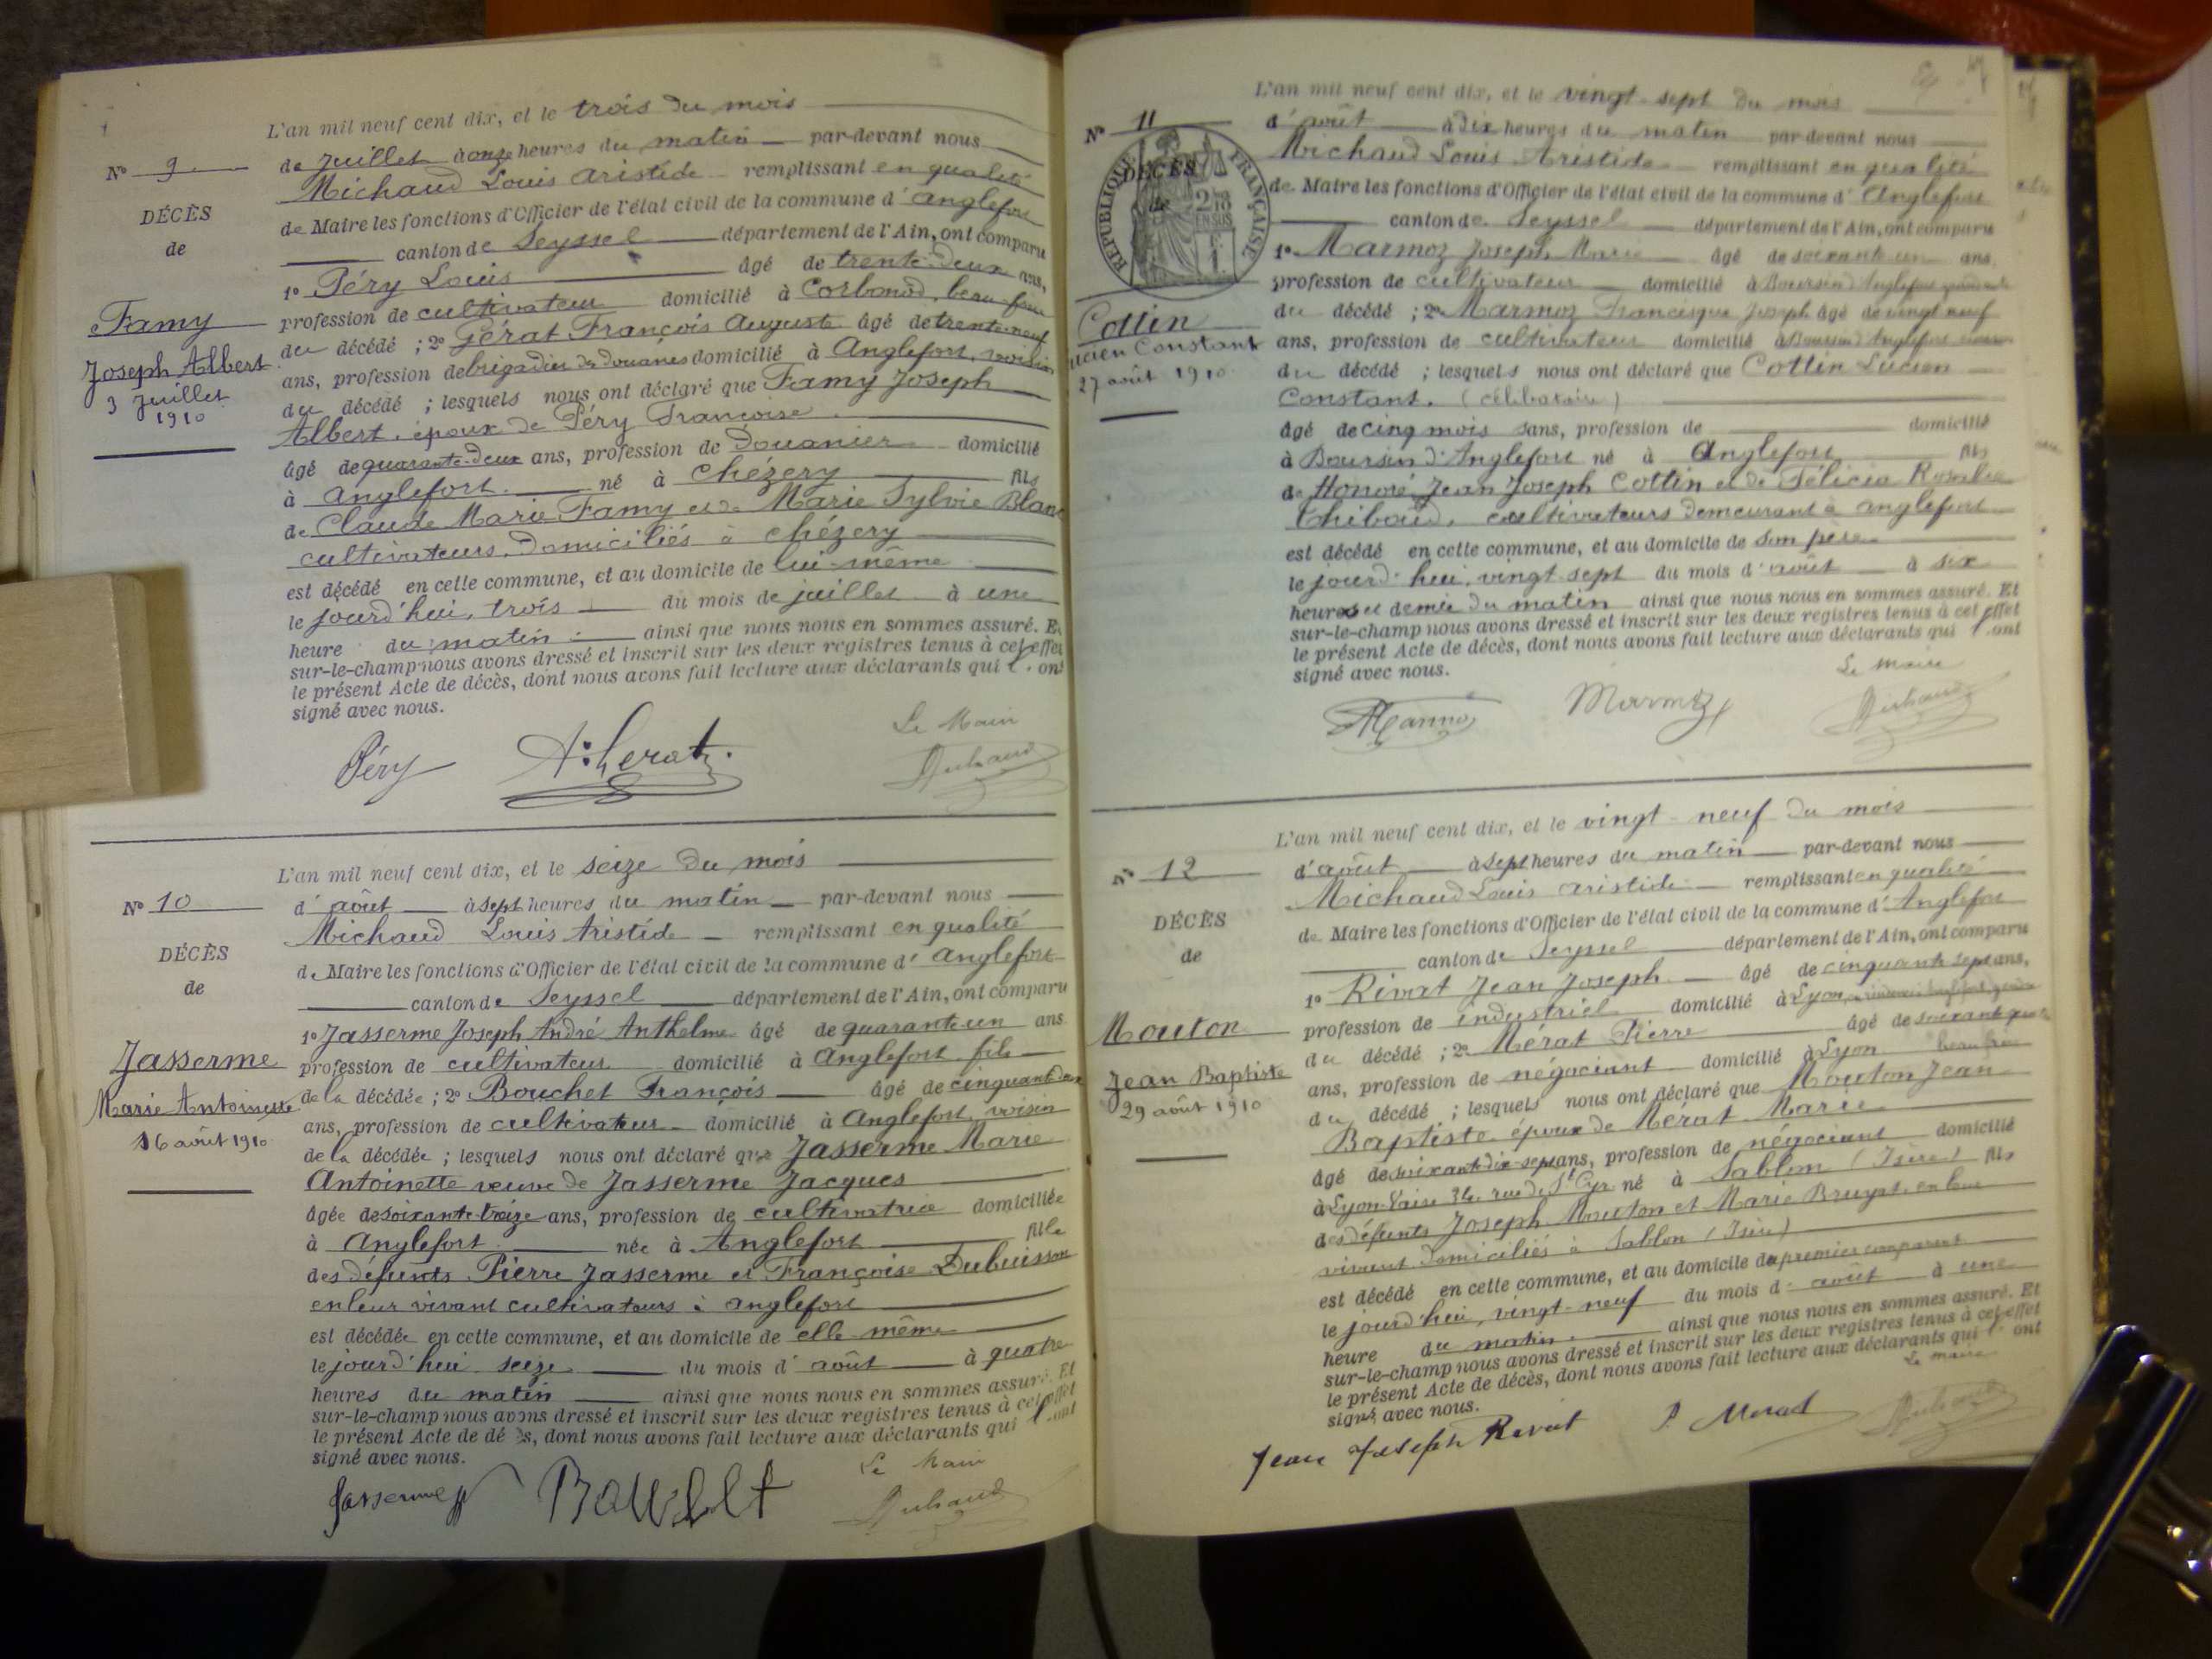 L'an mil neuf cent dix, et le trois du mois
Nº 9
de Juillet à onze heures du matin par-devant nous
Michaud Louis Aristide remplissant en qualité
DÉCÈS
de
de Maire les fonctions d'Officier de l'état civil de la commune d' Anglefort
canton de Seyssel département de l'Ain, ont comparu
1º Péry Louis âgé de trente-deux ans,
profession de cultivateur domicilié à Corbonod, beau-frère
Famy
Joseph Albert
3 Juillet
1910
du décédé ; 2º Gérat François Auguste âgé de trente-neuf
ans, profession de brigadier des douanes domicilié à Anglefort, voisin
du décédé ; lesquels nous ont déclaré que Famy Joseph
Albert, époux de Péry Françoise
âgé de quarante-deux ans, profession de Douanier domicilié
à Anglefort né à Chézery fils
de Claude Marie Famy et de Marie Sylvie Blanc
cultivateurs, domiciliés à Chézery
est décédé en cette commune, et au domicile de lui-même
le jourd'hui, trois du mois de juillet à une
heure du matin ainsi que nous nous en sommes assuré. Et
sur-le-champ nous avons dressé et inscrit sur les deux registres tenus à cet effet
le présent Acte de décès, dont nous avons fait lecture aux déclarants qui l'ont
signé avec nous.
Le Maire
Péry
Michaud
L'an mil neuf cent dix, et le seize du mois
Nº 10
d'août à sept heures du matin par-devant nous
Michaud Louis Aristide remplissant en qualité
DÉCÈS
de
de Maire les fonctions d'Officier de l'état civil de la commune d' Anglefort
canton de Seyssel département de l'Ain, ont comparu
1º Jasserme Joseph André Anthelme âgé de quarante-un ans
profession de cultivateur domicilié à Anglefort fils
Jasserme
Marie Antoinette
16 août 1910
de la décédée ; 2º Bouchet François âgé de cinquante-deux
ans, profession de cultivateur domicilié à Anglefort, voisin
de la décédée ; lesquels nous ont déclaré que Jasserme Marie
Antoinette veuve de Jasserme Jacques
âgée de soixante-treize ans, profession de cultivatrice domiciliée
à Anglefort née à Anglefort fille
des défunts Pierre Jasserme et Françoise Dubuisson
en leur vivant cultivateurs à Anglefort
est décédée en cette commune, et au domicile de elle-même
le jourd'hui seize du mois d'août à quatre
heures du matin ainsi que nous nous en sommes assuré. Et
sur-le-champ nous avons dressé et inscrit sur les deux registres tenus à cet effet
le présent Acte de décès, dont nous avons fait lecture aux déclarants qui l'ont
signé avec nous.
Le Maire
Jasserme
Michaud
L'an mil neuf cent dix, et le vingt-sept du mois
Nº 11
d'août à dix heures du matin par-devant nous
Michaud Louis Aristide remplissant en qualité
RÉPUBLIQUE FRANÇAISE
DÉCÈS
de
EN SUS
de Maire les fonctions d'Officier de l'état civil de la commune d' Anglefort
canton de Seyssel département de l'Ain, ont comparu
1º Marmoz Joseph Marie âgé de soixante-un ans
profession de cultivateur domicilié à Boursin d'Anglefort
Cottin
Lucien Constant
27 août 1910
du décédé ; 2º Marmoz Francisque Joseph âgé de vingt-neuf
ans, profession de cultivateur domicilié à Boursin d'Anglefort
du décédé ; lesquels nous ont déclaré que Cottin Lucien
Constant. (célibataire)
âgé de cinq mois sans, profession de domicilié
à Boursin d'Anglefort né à Anglefort fils
de Honoré Jean Joseph Cottin et de Félicia Rosalie
Thiboud, cultivateurs demeurant à Anglefort
est décédé en cette commune, et au domicile de son père
le jourd'hui, vingt-sept du mois d'août à six
heures et demie du matin ainsi que nous nous en sommes assuré. Et
sur-le-champ nous avons dressé et inscrit sur les deux registres tenus à cet effet
le présent Acte de décès, dont nous avons fait lecture aux déclarants qui l'ont
signé avec nous.
Le Maire
Marmoz
Michaud
L'an mil neuf cent dix, et le vingt-neuf du mois
Nº 12
d'août à sept heures du matin par-devant nous
Michaud Louis Aristide remplissant en qualité
DÉCÈS
de
de Maire les fonctions d'Officier de l'état civil de la commune d' Anglefort
canton de Seyssel département de l'Ain, ont comparu
1º Rivat Jean Joseph âgé de cinquante-sept ans,
profession de industriel domicilié à Lyon
Mouton
Jean Baptiste
29 août 1910
du décédé ; 2º Mérat Pierre âgé de
ans, profession de négociant domicilié à Lyon beau-frère
du décédé ; lesquels nous ont déclaré que Mouton Jean
Baptiste époux de Mérat Marie
âgé de soixante-dix-sept ans, profession de négociant domicilié
à Lyon-Vaise 34 rue de St Cyr né à Sablon (Isère) fils
des défunts Joseph Mouton et Marie Bruyat, en leur
vivant domiciliés à Sablon (Isère)
est décédé en cette commune, et au domicile du premier comparant
le jourd'hui, vingt-neuf du mois d'août à une
heure du matin ainsi que nous nous en sommes assuré. Et
sur-le-champ nous avons dressé et inscrit sur les deux registres tenus à cet effet
le présent Acte de décès, dont nous avons fait lecture aux déclarants qui l'ont
signé avec nous.
Le Maire
Jean Joseph Rivat
P. Merat
Michaud